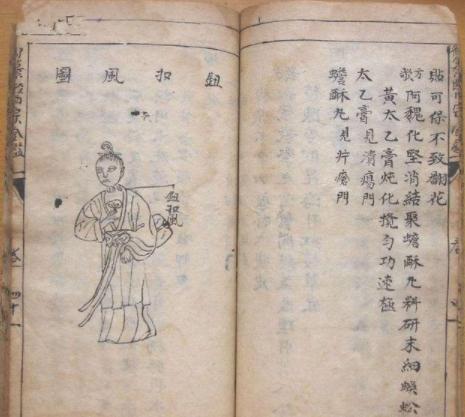 貼可保不致翻花
方歌 阿魏化堅消結聚蟾酥丸料研末細蜈蚣
黃太乙膏炖化攪勻功速極
太乙膏見潰瘍門
蟾酥丸見疔瘡門
鈕扣風圖
鈕扣風
卷
四十一